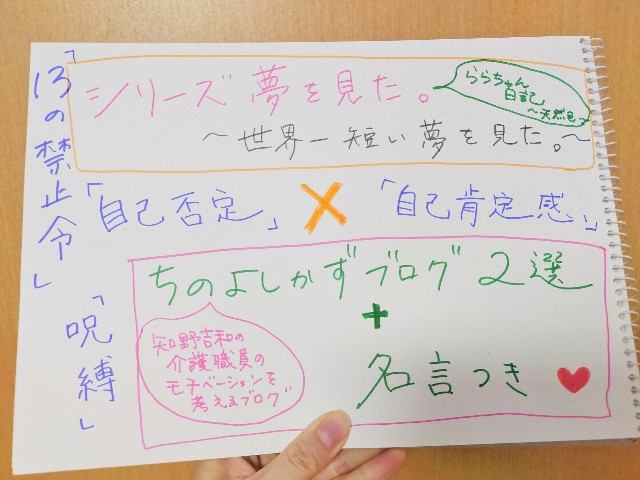 「13の禁止令」
シリーズ夢を見た。
ららちゃん
日記
～天然色～
～世界一短い夢を見た。～
「自己否定」×「自己肯定感」
「呪縛」
ちのよしかずブログ2選
+
名言つき
知野吉和の
介護職員の
モチベーションを
考えるブログ